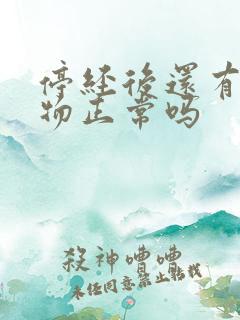 停经后还有
物正常吗
殺神嘈嘈
未经同意禁止转载